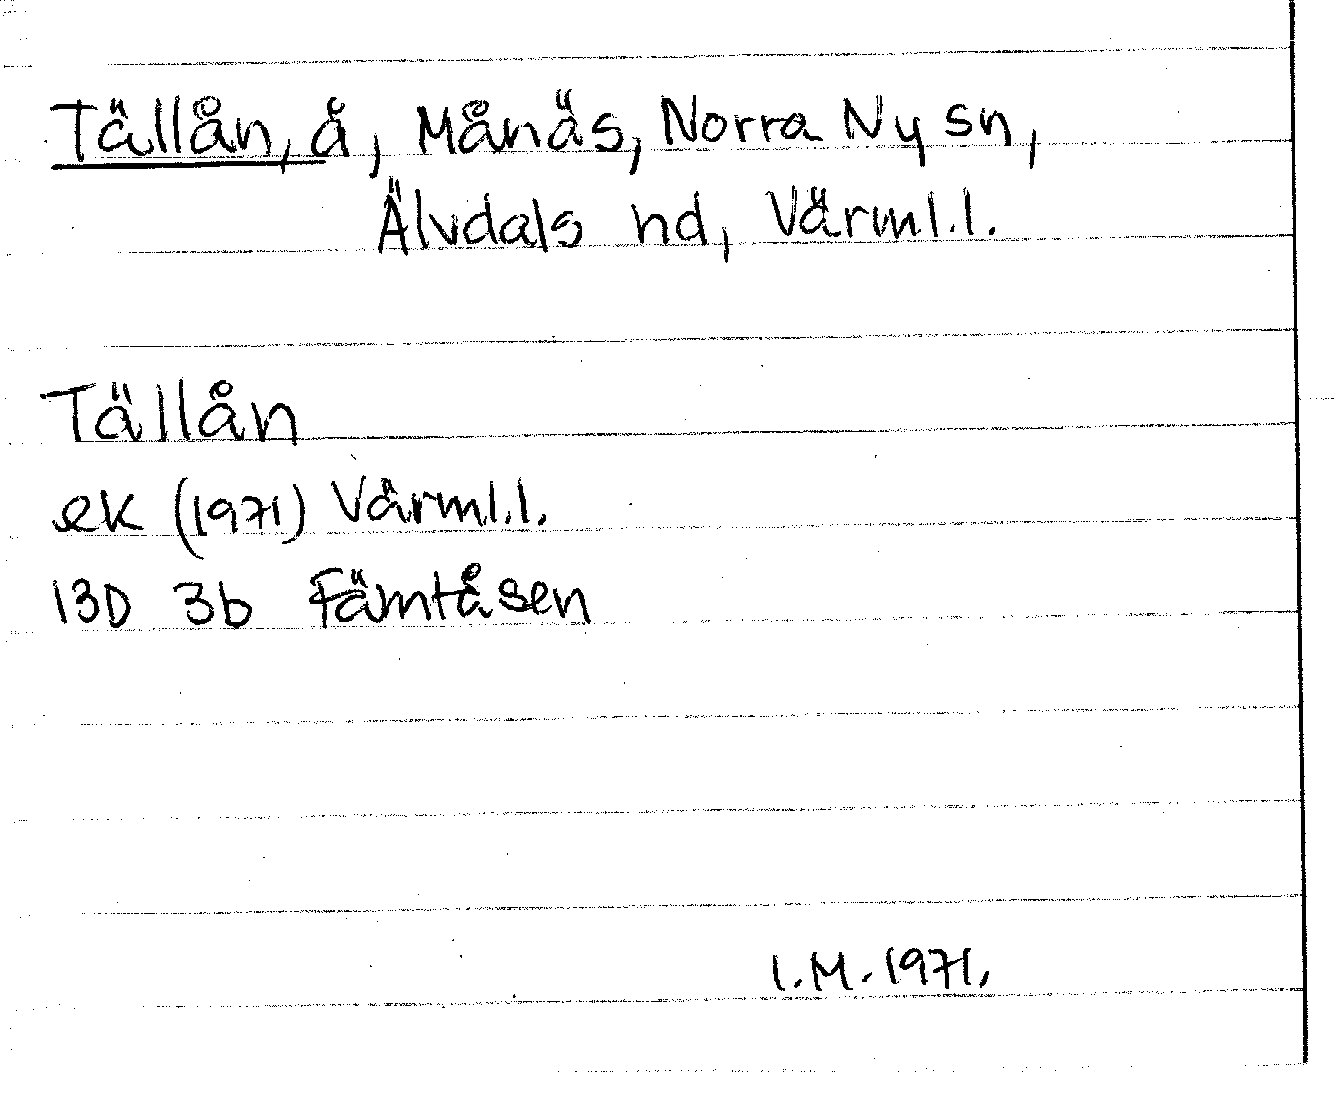 Tällån, å, Månäs, Norra Ny sn,
Älvdals hd, Värml.l.
Tällån
ek (1971) Värml.l.
13D 3b Fämtåsen
I.M. 1971.